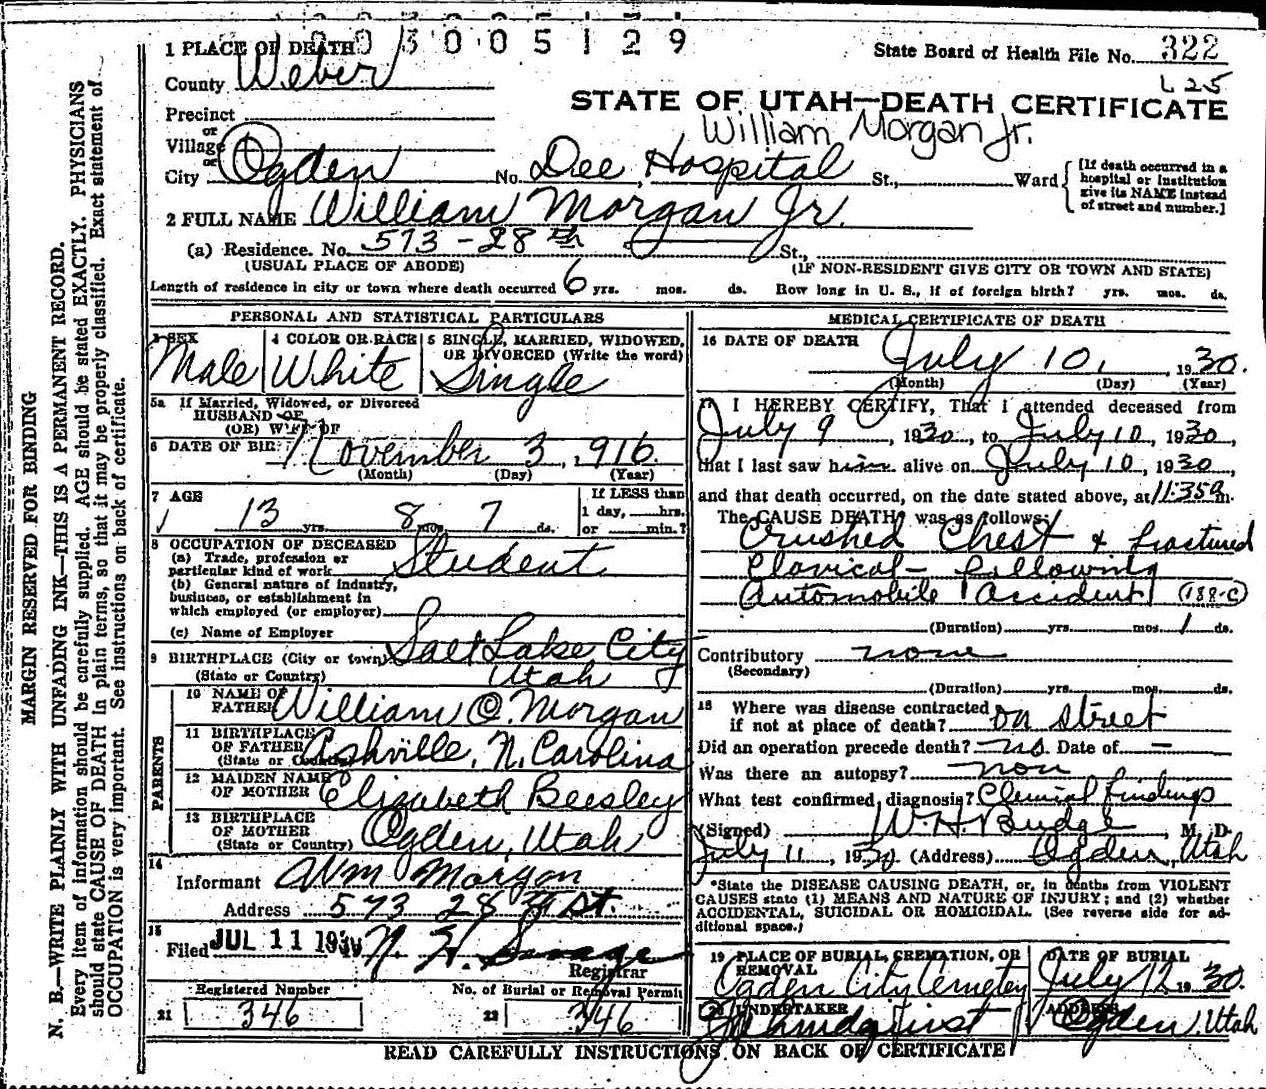 003005129
1 PLACE OF DEATH
State Board of Health File No. 322
County Weber
L25
STATE OF UTAH—DEATH CERTIFICATE
Precinct
or
Village
or
William Morgan Jr.
City Ogden No. Dee Hospital St., Ward
[If death occurred in a hospital or institution give its NAME instead of street and number.]
2 FULL NAME William Morgan Jr.
(a) Residence. No. 573-28th St.,
(USUAL PLACE OF ABODE) (IF NON-RESIDENT GIVE CITY OR TOWN AND STATE)
Length of residence in city or town where death occurred 6 yrs. mos. ds. How long in U. S., if of foreign birth? yrs. mos. ds.
PERSONAL AND STATISTICAL PARTICULARS
3 SEX
Male
4 COLOR OR RACE
White
5 SINGLE, MARRIED, WIDOWED,
OR DIVORCED (Write the word)
Single
5a If Married, Widowed, or Divorced
HUSBAND OF
(OR) WIFE OF
6 DATE OF BIR November 3, 1916
(Month) (Day) (Year)
7 AGE
13 yrs. 8 mos. 7 ds.
If LESS than
1 day, hrs.
or min.?
8 OCCUPATION OF DECEASED
(a) Trade, profession or
particular kind of work Student
(b) General nature of industry,
business, or establishment in
which employed (or employer)
(c) Name of Employer
9 BIRTHPLACE (City or town) Salt Lake City
(State or Country) Utah
PARENTS
10 NAME OF
FATHER William O. Morgan
11 BIRTHPLACE
OF FATHER Ashville, N. Carolina
(State or Country)
12 MAIDEN NAME
OF MOTHER Elizabeth Beesley
13 BIRTHPLACE
OF MOTHER
(State or Country) Ogden, Utah
14
Informant Wm Morgan
Address 573 28th St.
15
Filed JUL 11 1930 N. H. Savage
Registrar
Registered Number
21 346
No. of Burial or Removal Permit
22 346
MEDICAL CERTIFICATE OF DEATH
16 DATE OF DEATH July 10, 1930.
(Month) (Day) (Year)
17 I HEREBY CERTIFY, That I attended deceased from
July 9, 1930, to July 10, 1930,
that I last saw him alive on July 10, 1930,
and that death occurred, on the date stated above, at 11:35 a m.
The CAUSE DEATH was as follows:
Crushed Chest & fractured
Clavical - following
Automobile Accident 188-C
(Duration) yrs. mos. 1 ds.
Contributory none
(Secondary)
(Duration) yrs. mos. ds.
18 Where was disease contracted
if not at place of death? on street
Did an operation precede death? no. Date of —
Was there an autopsy? non
What test confirmed diagnosis? Clenical findings
(Signed) W. H. Budge, M. D.
July 11, 1930. (Address) Ogden, Utah
*State the DISEASE CAUSING DEATH, or, in deaths from VIOLENT
CAUSES state (1) MEANS AND NATURE OF INJURY; and (2) whether
ACCIDENTAL, SUICIDAL OR HOMICIDAL. (See reverse side for ad-
ditional space.)
19 PLACE OF BURIAL, CREMATION, OR
REMOVAL
Ogden City Cemetery
DATE OF BURIAL
July 12 1930.
20 UNDERTAKER
Lindquist
ADDRESS
Ogden, Utah
READ CAREFULLY INSTRUCTIONS ON BACK OF CERTIFICATE
MARGIN RESERVED FOR BINDING
N. B.—WRITE PLAINLY WITH UNFADING INK—THIS IS A PERMANENT RECORD.
Every item of information should be carefully supplied. AGE should be stated EXACTLY. PHYSICIANS
should state CAUSE OF DEATH in plain terms, so that it may be properly classified. Exact statement of
OCCUPATION is very important. See instructions on back of certificate.